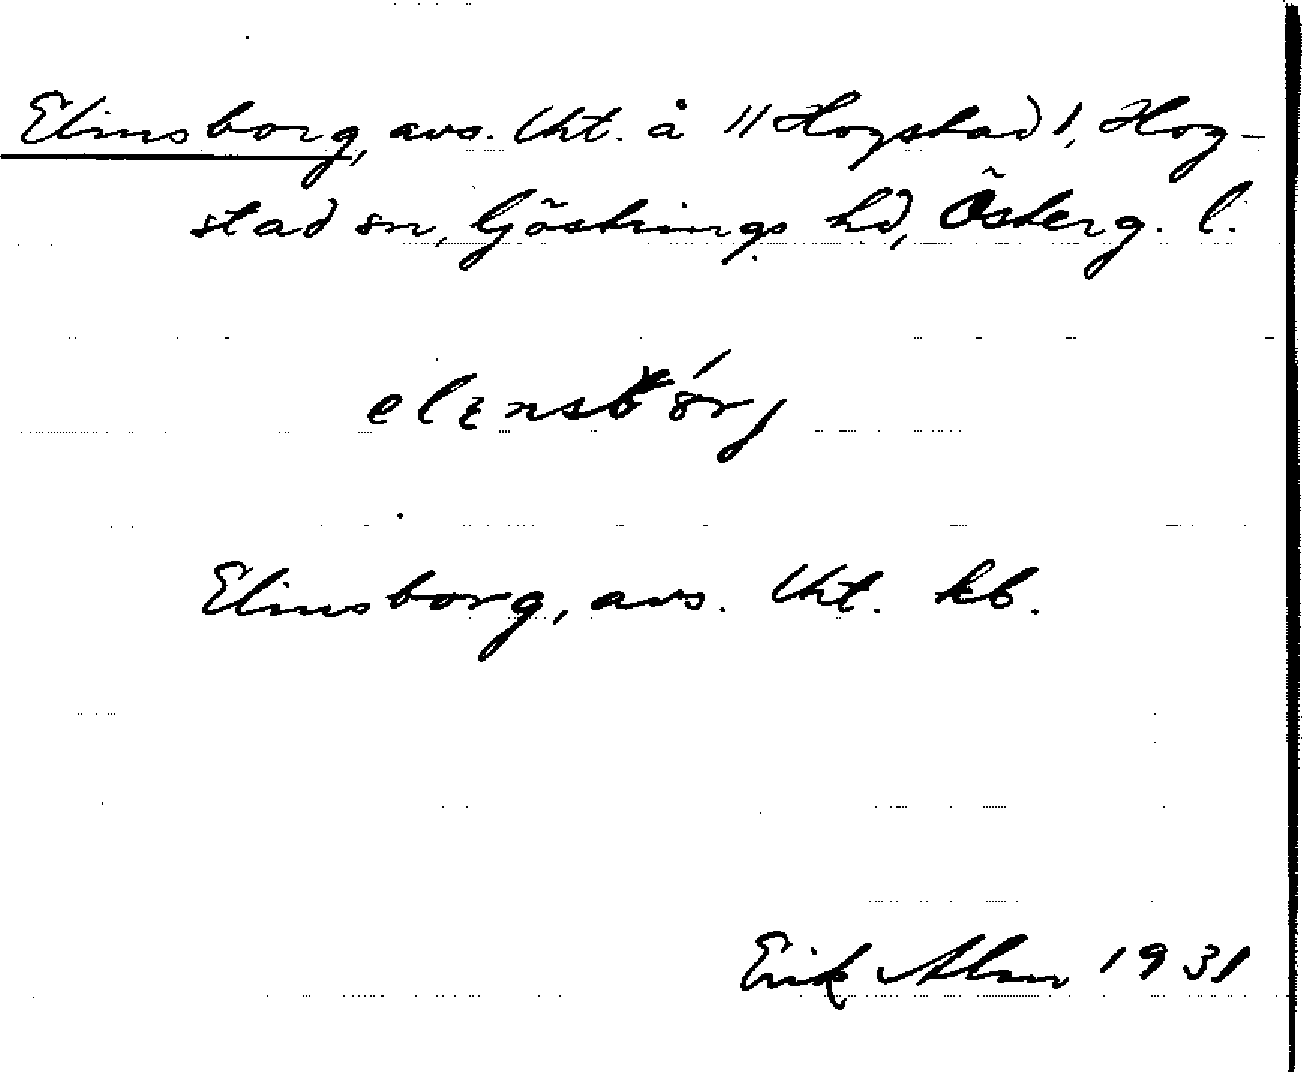 Elinsborg, avs. lht. å "Hogstad", Hog-
stad sn, Göstrings hd, Österg. l.
elɪnsbórj
Elinsborg, avs. lht. kb.
Erik Abrn 1931